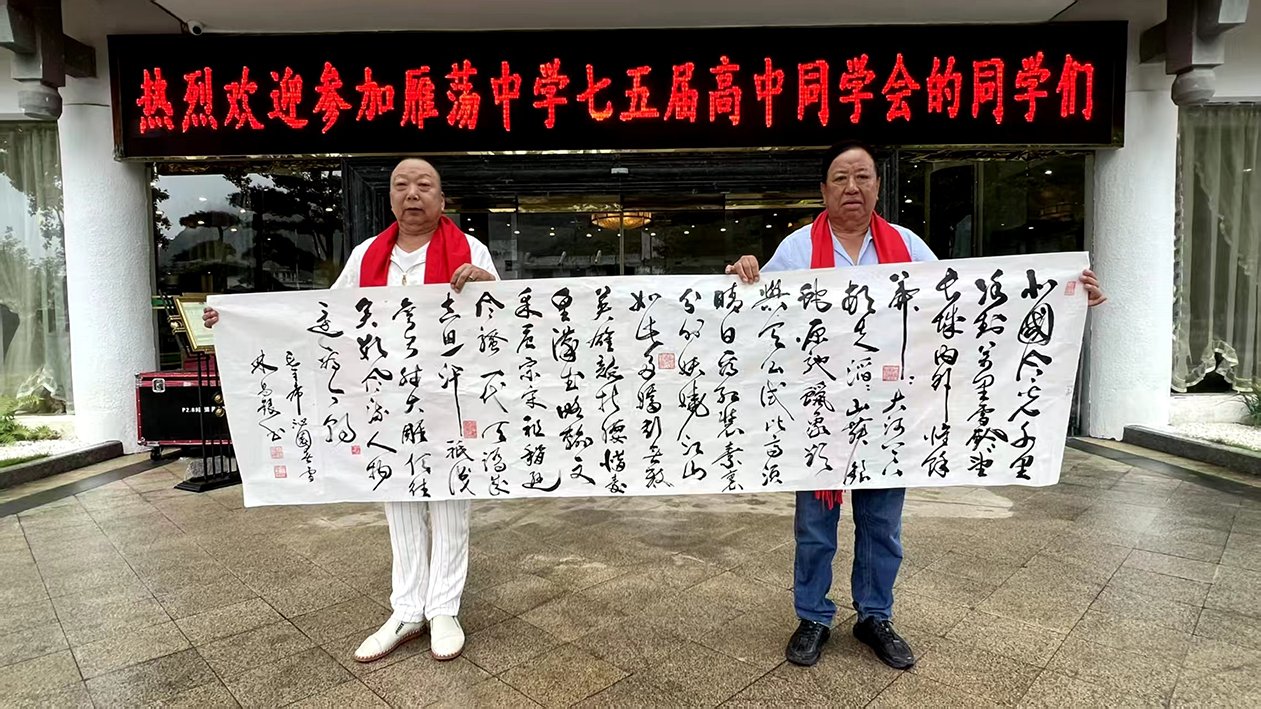 热烈欢迎参加雁荡中学七五届高中同学会的同学们
北國风光千里
冰封万里雪飘望
长城内外惟馀
莽々大河上下
顿失滔々山舞银
蛇原驰蜡象欲
與天公试比高须
晴日看红装素裹
分外妖娆江山
如此多娇引无数
英雄竞折腰惜秦
皇汉武略输文
采唐宗宋祖稍逊
风骚一代天骄成
吉思汗祇识
弯弓射大雕俱往
矣数风流人物
还看今朝
毛主席沁园春雪